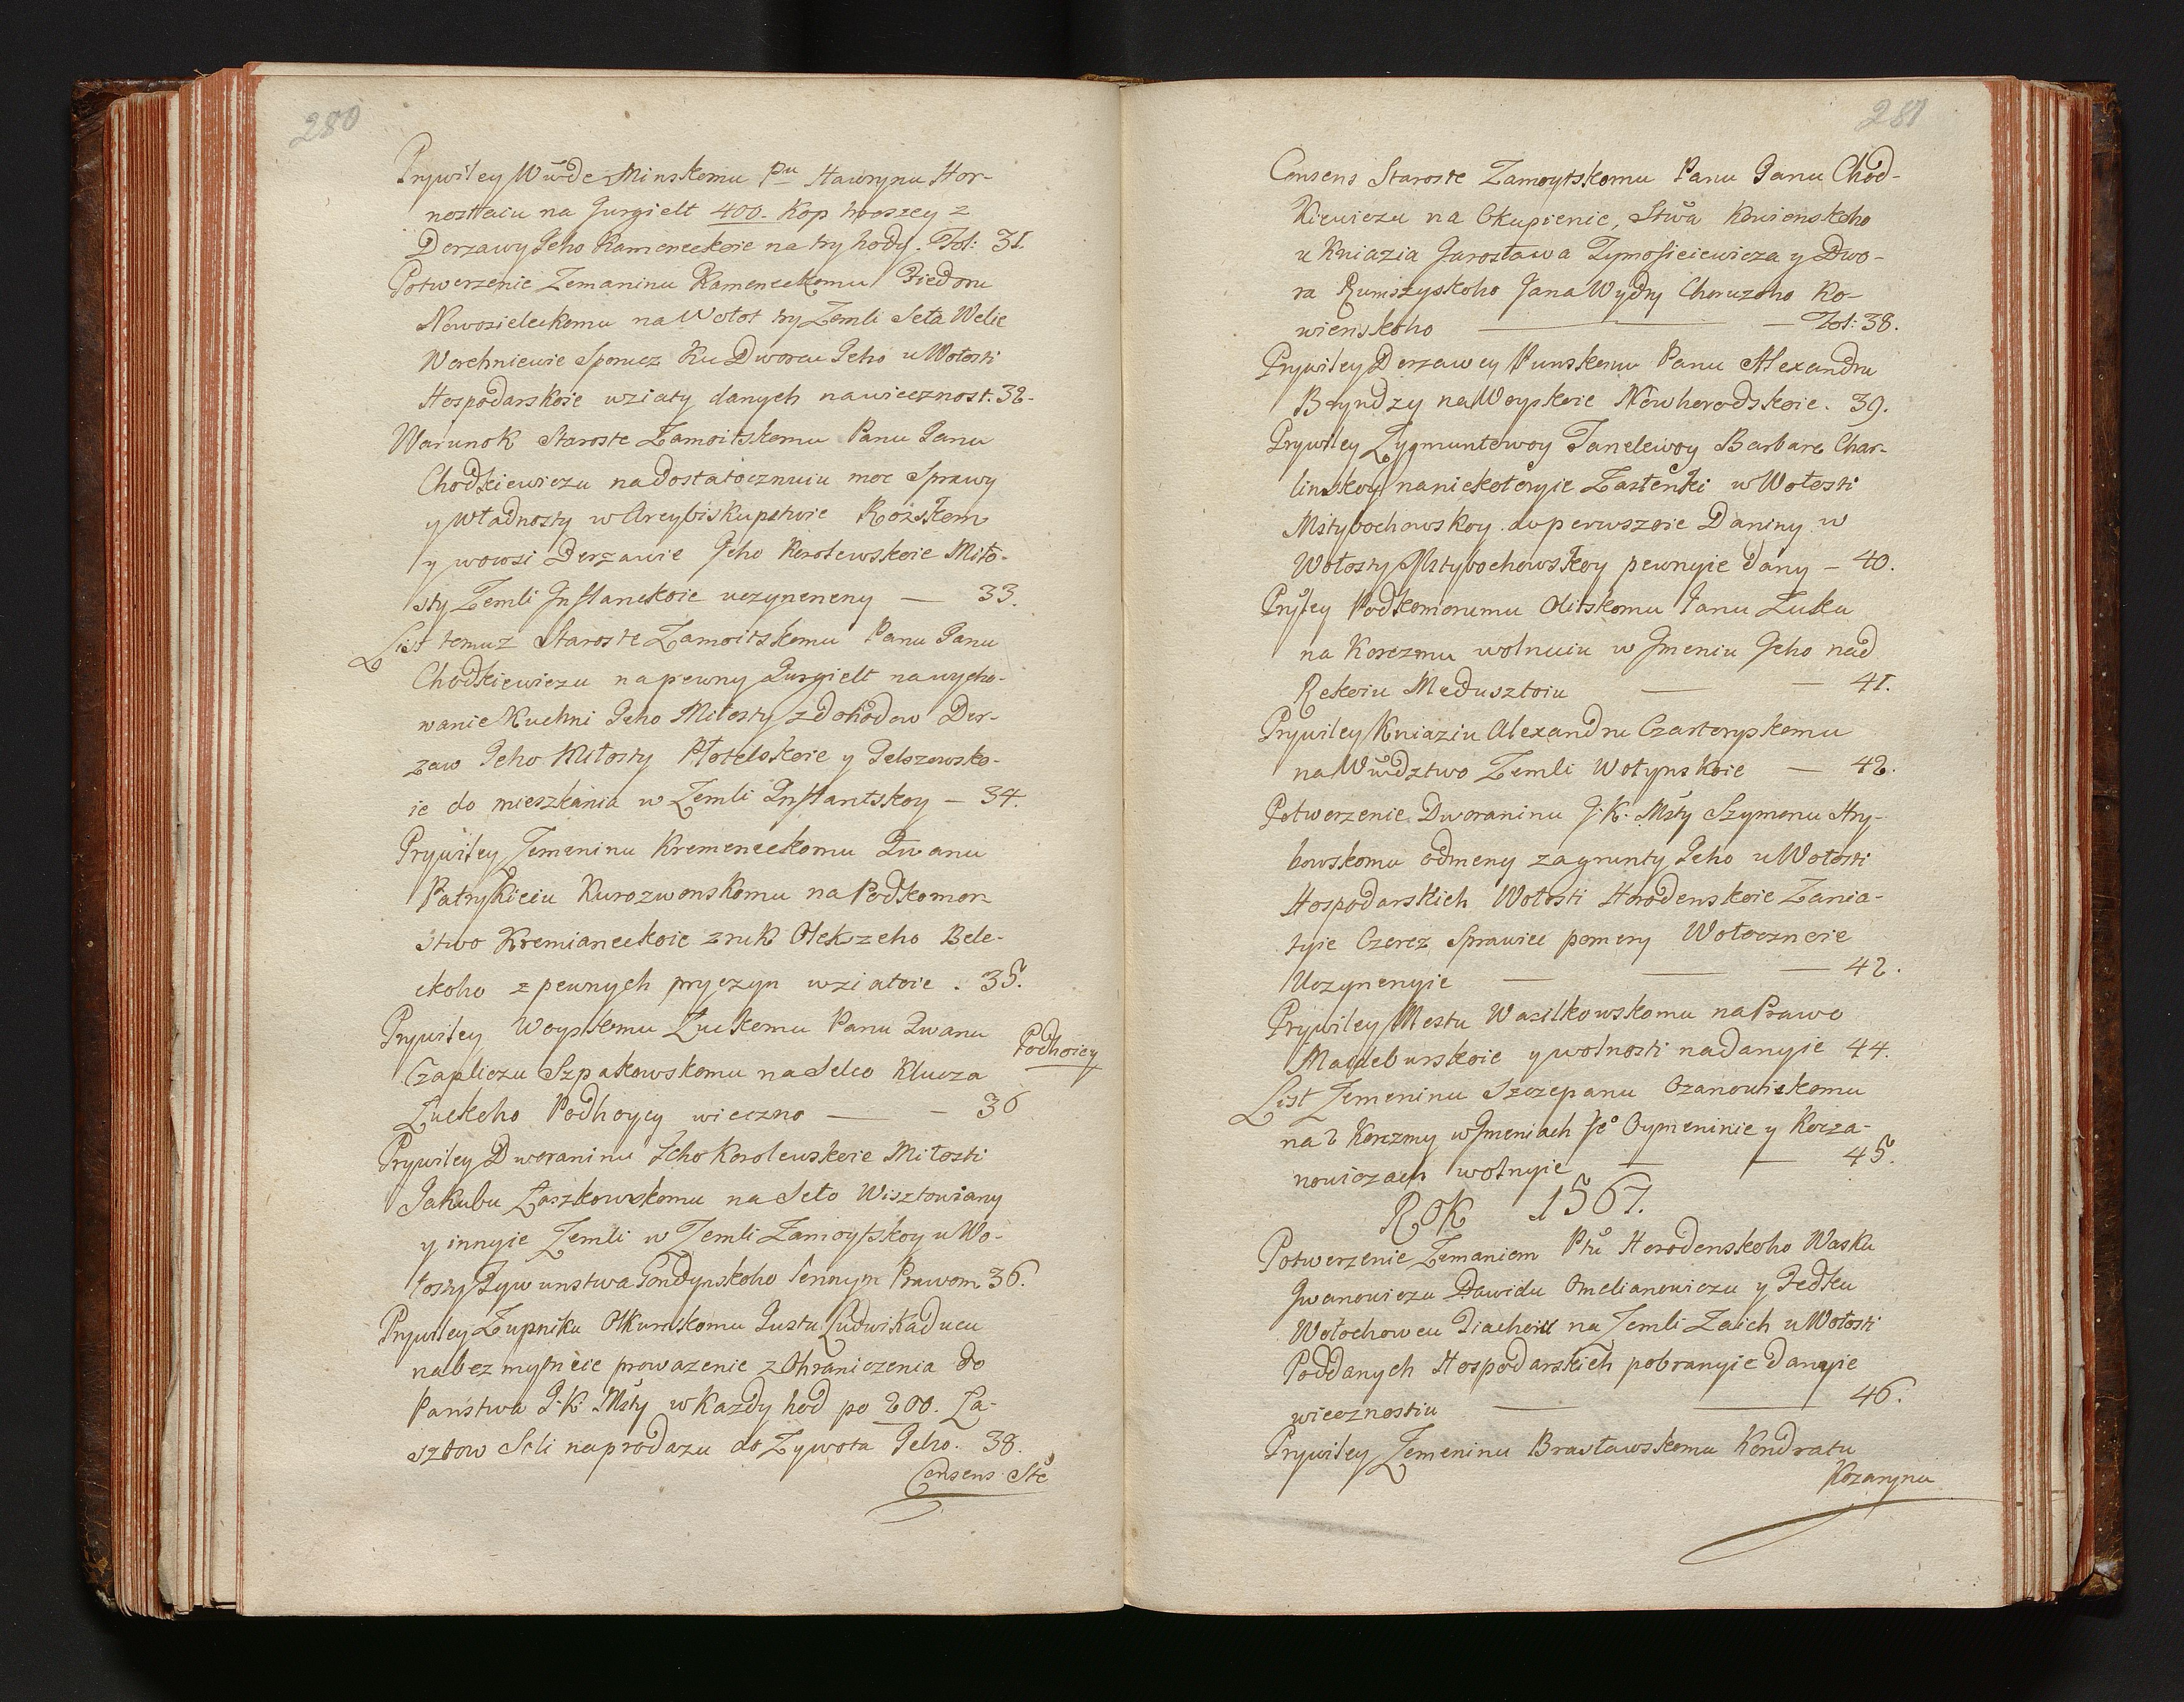 280
Prywiley Wwde Minskomu Pnu Hawrynu Hor-
nostaiu na Jurgielt 400. Kop hroszey z
Derzawy Jeho Kameneckoie na try hody. Fol: 31.
Potwerzenie Zemaninu Kameneckomu Fiedoru
Nowosieleckomu na Wołok try Zemli Seła Welie
Werchniewie Sporucz Ku Dworcu Jeho u Wołosti
Hospodarskoie wziaty danych na wiecznost. 32.
Warunok Staroste Zamoitskomu Panu Janu
Chodkiewiczu na dostatocznuiu moc Sprawy
y Władnosty w Arcybiskupstwie Rożskom
y wowsi Derzawie Jeho Korolewskoie Miło-
sty Zemli Inflanckoie uczyneneny — 33.
List temuz Staroste Zamoitskomu Panu Janu
Chodkiewiczu na pewny Jurgielt na wycho-
wanie Kuchni Jeho Miłosty z dohodow Der-
zaw Jeho Miłosty Płotelskoie y Telszowsko-
ie do mieszkania w Zemli Inflantskoy — 34.
Prywiley Zemeninu Kremeneckomu Iwanu
Patrykieiu Kurozwonskomu na Podkomor
stwo Kremianeckoie z ruk Olekszeho Bele-
ckoho z pewnych pryczyn wziatoie . 35.
Prywiley Woyskomu Łuckomu Panu Iwanu
Czapliczu Szpakowskomu na Selco Klucza
Podhoicy
Łuckoho Podhoycy wieczno — - 36
Prywiley Dworaninu Jeho Korolewskoie Miłosti
Jakubu Łaszkowskomu na Seło Wisztowiany
y innyie Zemli w Zemli Zamoytskoy u Wo-
łosty Tywunstwa Pondynskoho Lennym Prawom 36.
Prywiley Zupniku Olkuskomu Justu Ludwikaducu
na bez mytnoie prowazenie z Ohraniczenia do
Panstwa J. K. Msty w Kazdy hod po 200. Ła-
sztow Soli na prodazu do Zywota Jeho. 38.
Consens Ste
281
Consens Staroste Zamoytskomu Panu Janu Chod-
Kiewiczu na Okupienie, Stwa Kowienskoho
u Kniazia Jarosława Tymofieiewicza y Dwo-
ra Rumszyskoho Jana Wydry Choruzoho Ko-
wienskoho — — Fol: 38.
Prywiley Derzawcy Punskomu Panu Alexandru
Bryndzy na Woyskoie Nowhorodskoie . 39.
Prywiley Zygmuntowoy Fanelewoy Barbare Char-
linskoy na niekotoryie Zastenki w Wołosti
Mstybochowskoy. do perwszoie Daniny w
Wołosty Mstybochowskoy pewnyie dany — 40.
Prwley Podkomorumu Olitskomu Janu Zuku
na Korczmu wolnuiu w Imeniu Jeho nad
Rekoiu Medusztoiu — — 41.
Prywiley Kniaziu Alexandru Czartoryskomu
na Wwdztwo Zemli Wołynskoie — 42.
Potwerzenie Dworaninu J. K. Msty Szymonu Hry-
bowskomu odmeny za grunty Jeho u Wołosti
Hospodarskich Wołosti Horodenskoie Zania-
tyie Czerez Sprawiec pomery Wołocznoie
Uczynenyie — — — 42.
Prywiley Mestu Wasilkowskomu na Prawo
Maydeburskoie y wolnosti nadanyie 44.
List Zemeninu Szczepanu Ozanowiskomu
na 2 Korczmy w Imeniach Je° Oymeninie y Korza-
nowiczach wolnyie — — 45.
ROK 1567.
Potwerzenie Zemaniem Ptu Horodenskoho Wasku
Iwanowiczu Dawidu Omelianowiczu y Fedku
Wołochowcu Diachow na Zemli Zaich u Wołosti
Poddanych Hospodarskich pobranyie danyie
wiecznostiu — — 46.
Prywiley Zemeninu Brasławskomu Kondratu
Kozarynu